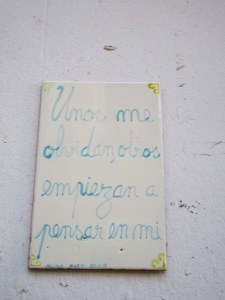 Unos me
olvidan, otros
empiezan a
pensar en mi